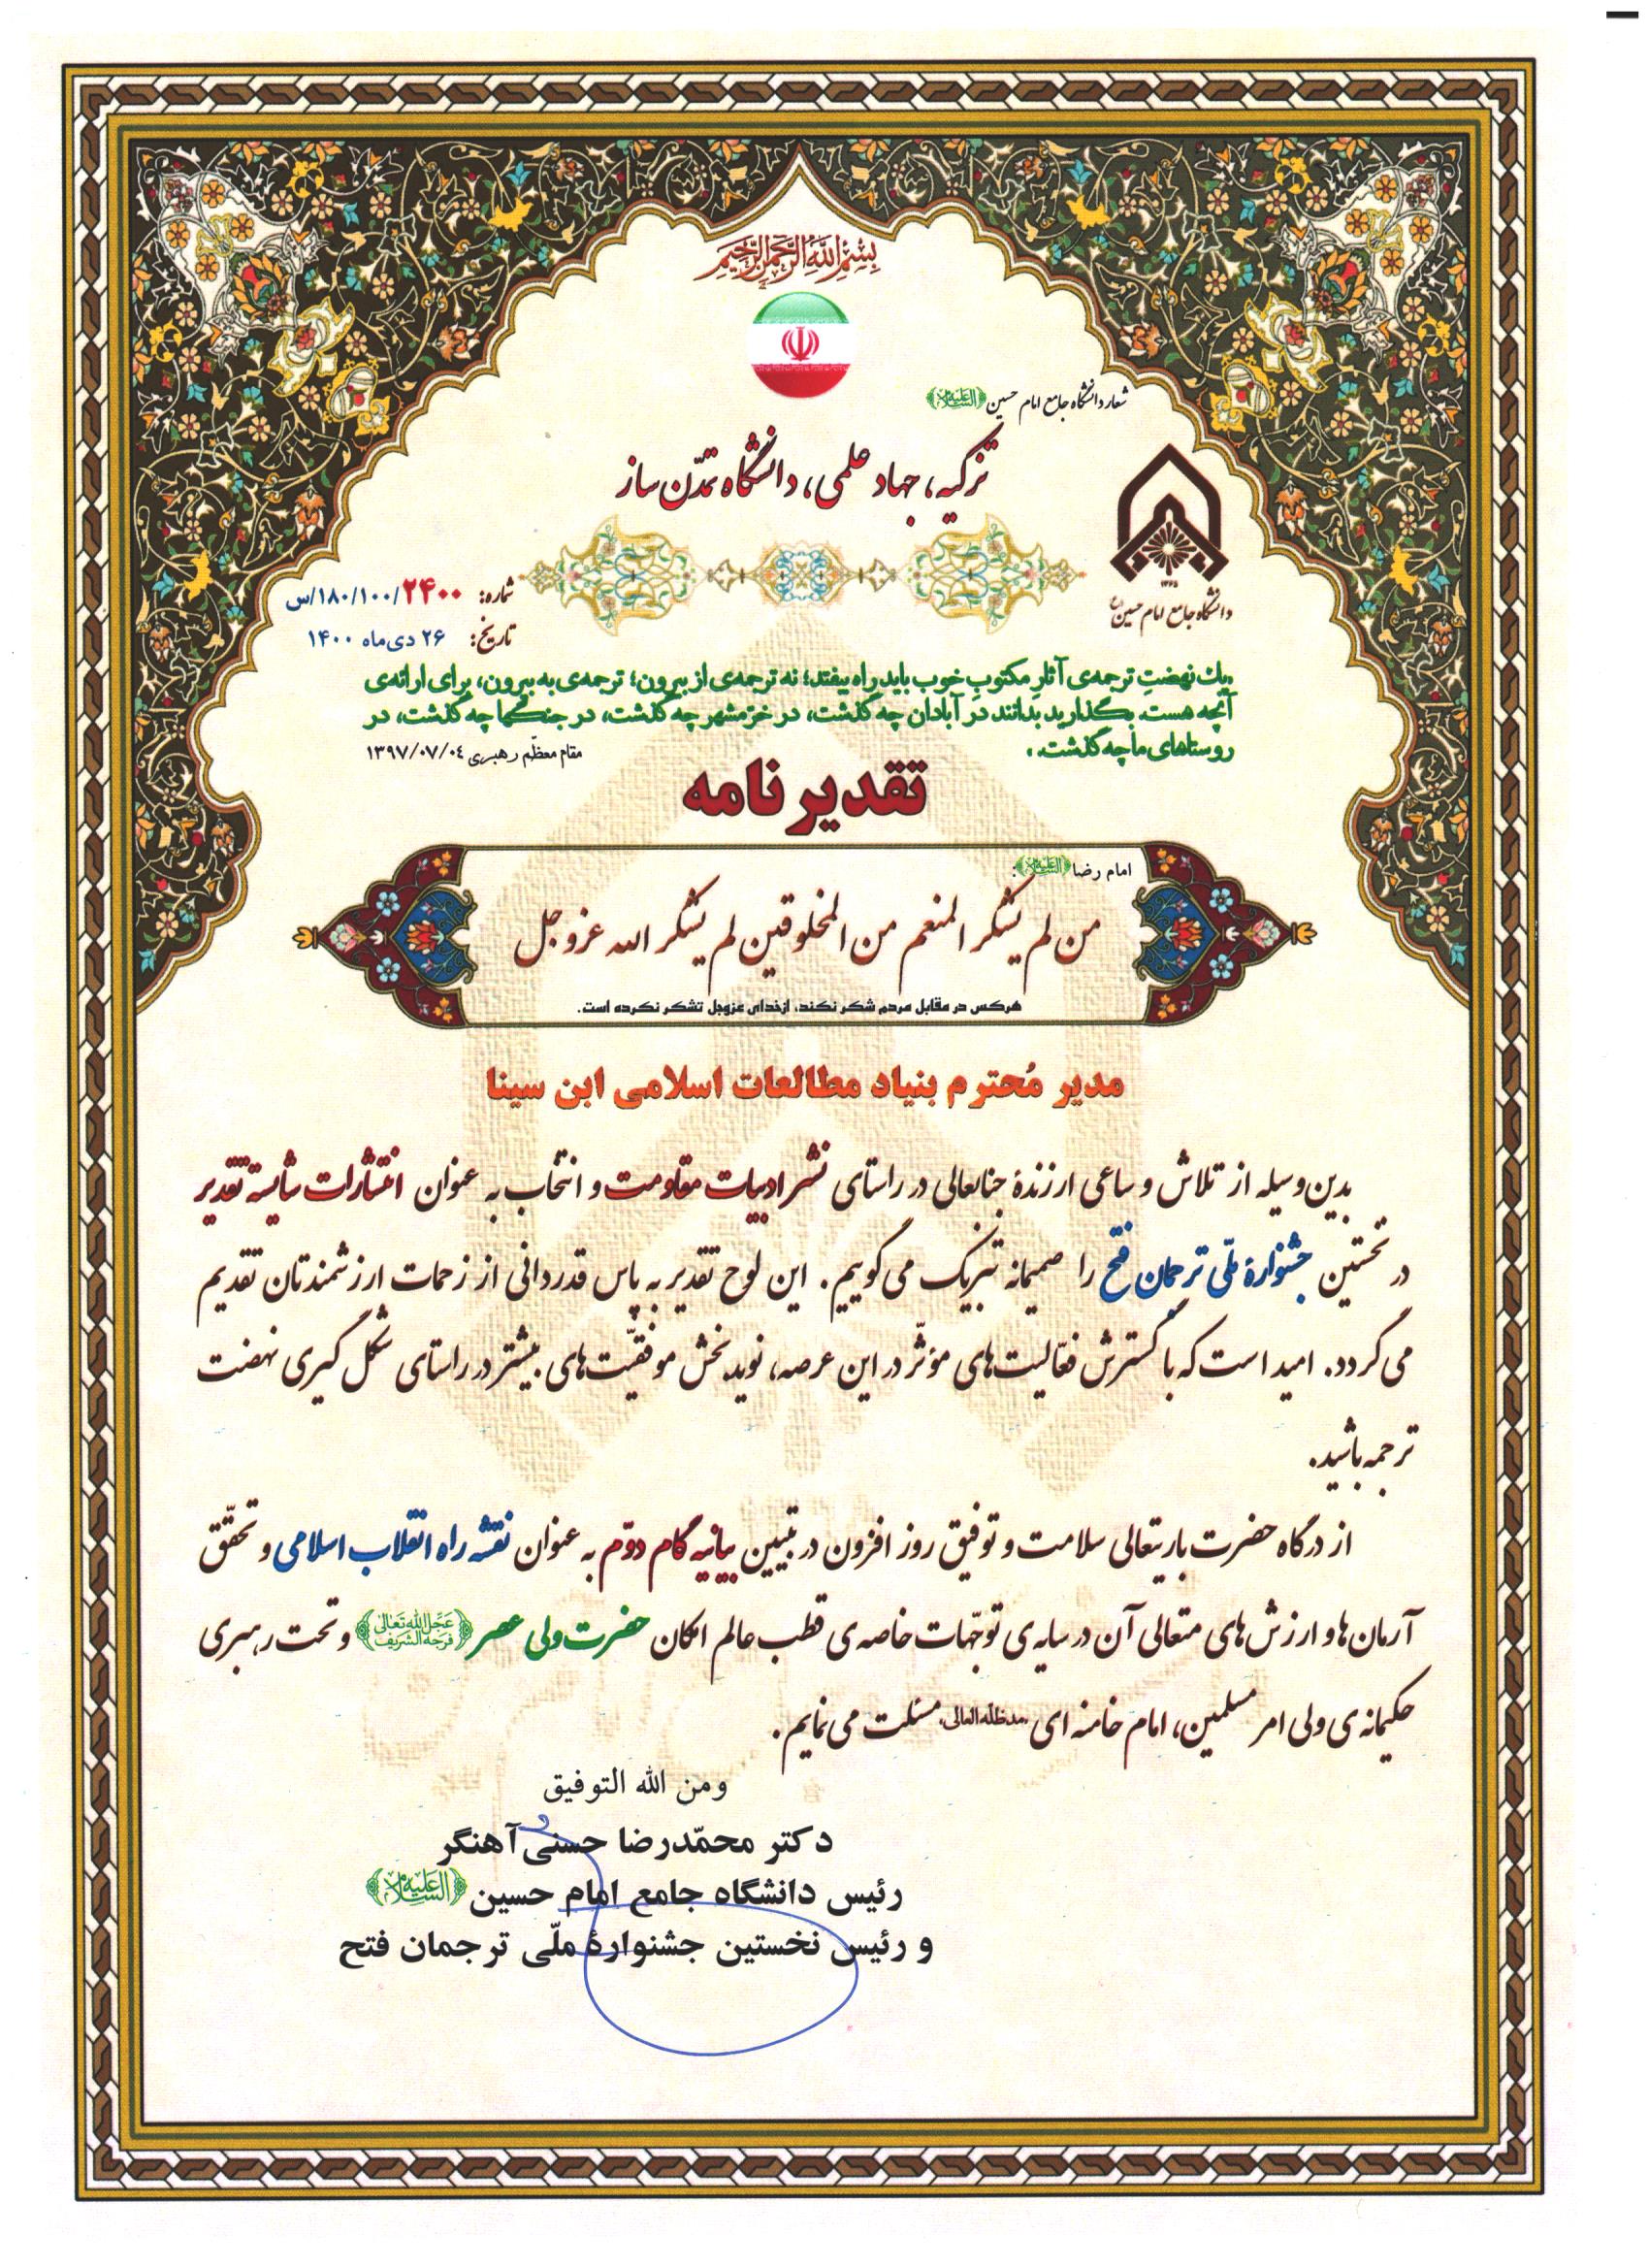 بسم الله الرحمن الرحیم
شعار دانشگاه جامع امام حسین (علیه السلام)
تزکیه، جهاد علمی، دانشگاه تمدّن ساز
۱۳۶۵
دانشگاه جامع امام حسین (ع)
شماره: ۲۴۰۰/۱۸۰/۱۰۰/س
تاریخ: ۲۶ دی‌ماه ۱۴۰۰
«یك نهضتِ ترجمه‌ی آثارِ مکتوبِ خوب باید راه بیفتد؛ نه ترجمه‌ی از بیرون؛ ترجمه‌ی به بیرون، برای ارائه‌ی
آنچه هست. بگذارید بدانند در آبادان چه گذشت، در خرّمشهر چه گذشت، در جنگها چه گذشت، در
روستاهای ما چه گذشت.»
مقام معظّم رهبری ۱۳۹۷/۰۷/۰٤
تقدیر نامه
امام رضا (علیه السلام):
من لم یشکر المنعم من المخلوقین لم یشکر الله عزوجل
هرکس در مقابل مردم شکر نکند، ازخدای عزوجل تشکر نکرده است.
مدیر مُحترم بنیاد مطالعات اسلامی ابن سینا
بدین‌وسیله از تلاش و ساعی ارزندۀ جنابعالی در راستای نشر ادبیات مقاومت و انتخاب به عنوان انتشارات شایسته تقدیر
در نخستین جشنوارۀ ملّی ترجمان فتح را صمیمانه تبریک می‌گوییم. این لوح تقدیر به پاس قدردانی از زحمات ارزشمندتان تقدیم
می‌گردد. امید است که با گسترش فعّالیت‌های مؤثّر در این عرصه، نویدبخش موفقیّت‌های بیشتر در راستای شکل گیری نهضت
ترجمه باشید.
از درگاه حضرت باریتعالی سلامت و توفیق روز افزون در تبیین بیانیه گام دوّم به عنوان نقشه راه انقلاب اسلامی و تحقّق
آرمان‌ها و ارزش‌های متعالی آن در سایه‌ی توجّهات خاصه‌ی قطب عالم امکان حضرت ولی عصر (عجل الله تعالی فرجه الشریف) و تحت رهبری
حکیمانه‌ی ولی امر مسلمین، امام خامنه ای «مدظله‌العالی» مسئلت می‌نمایم.
ومن الله التوفیق
دکتر محمّدرضا حسنی آهنگر
رئیس دانشگاه جامع امام حسین (علیه السلام)
و رئیس نخستین جشنوارۀ ملّی ترجمان فتح